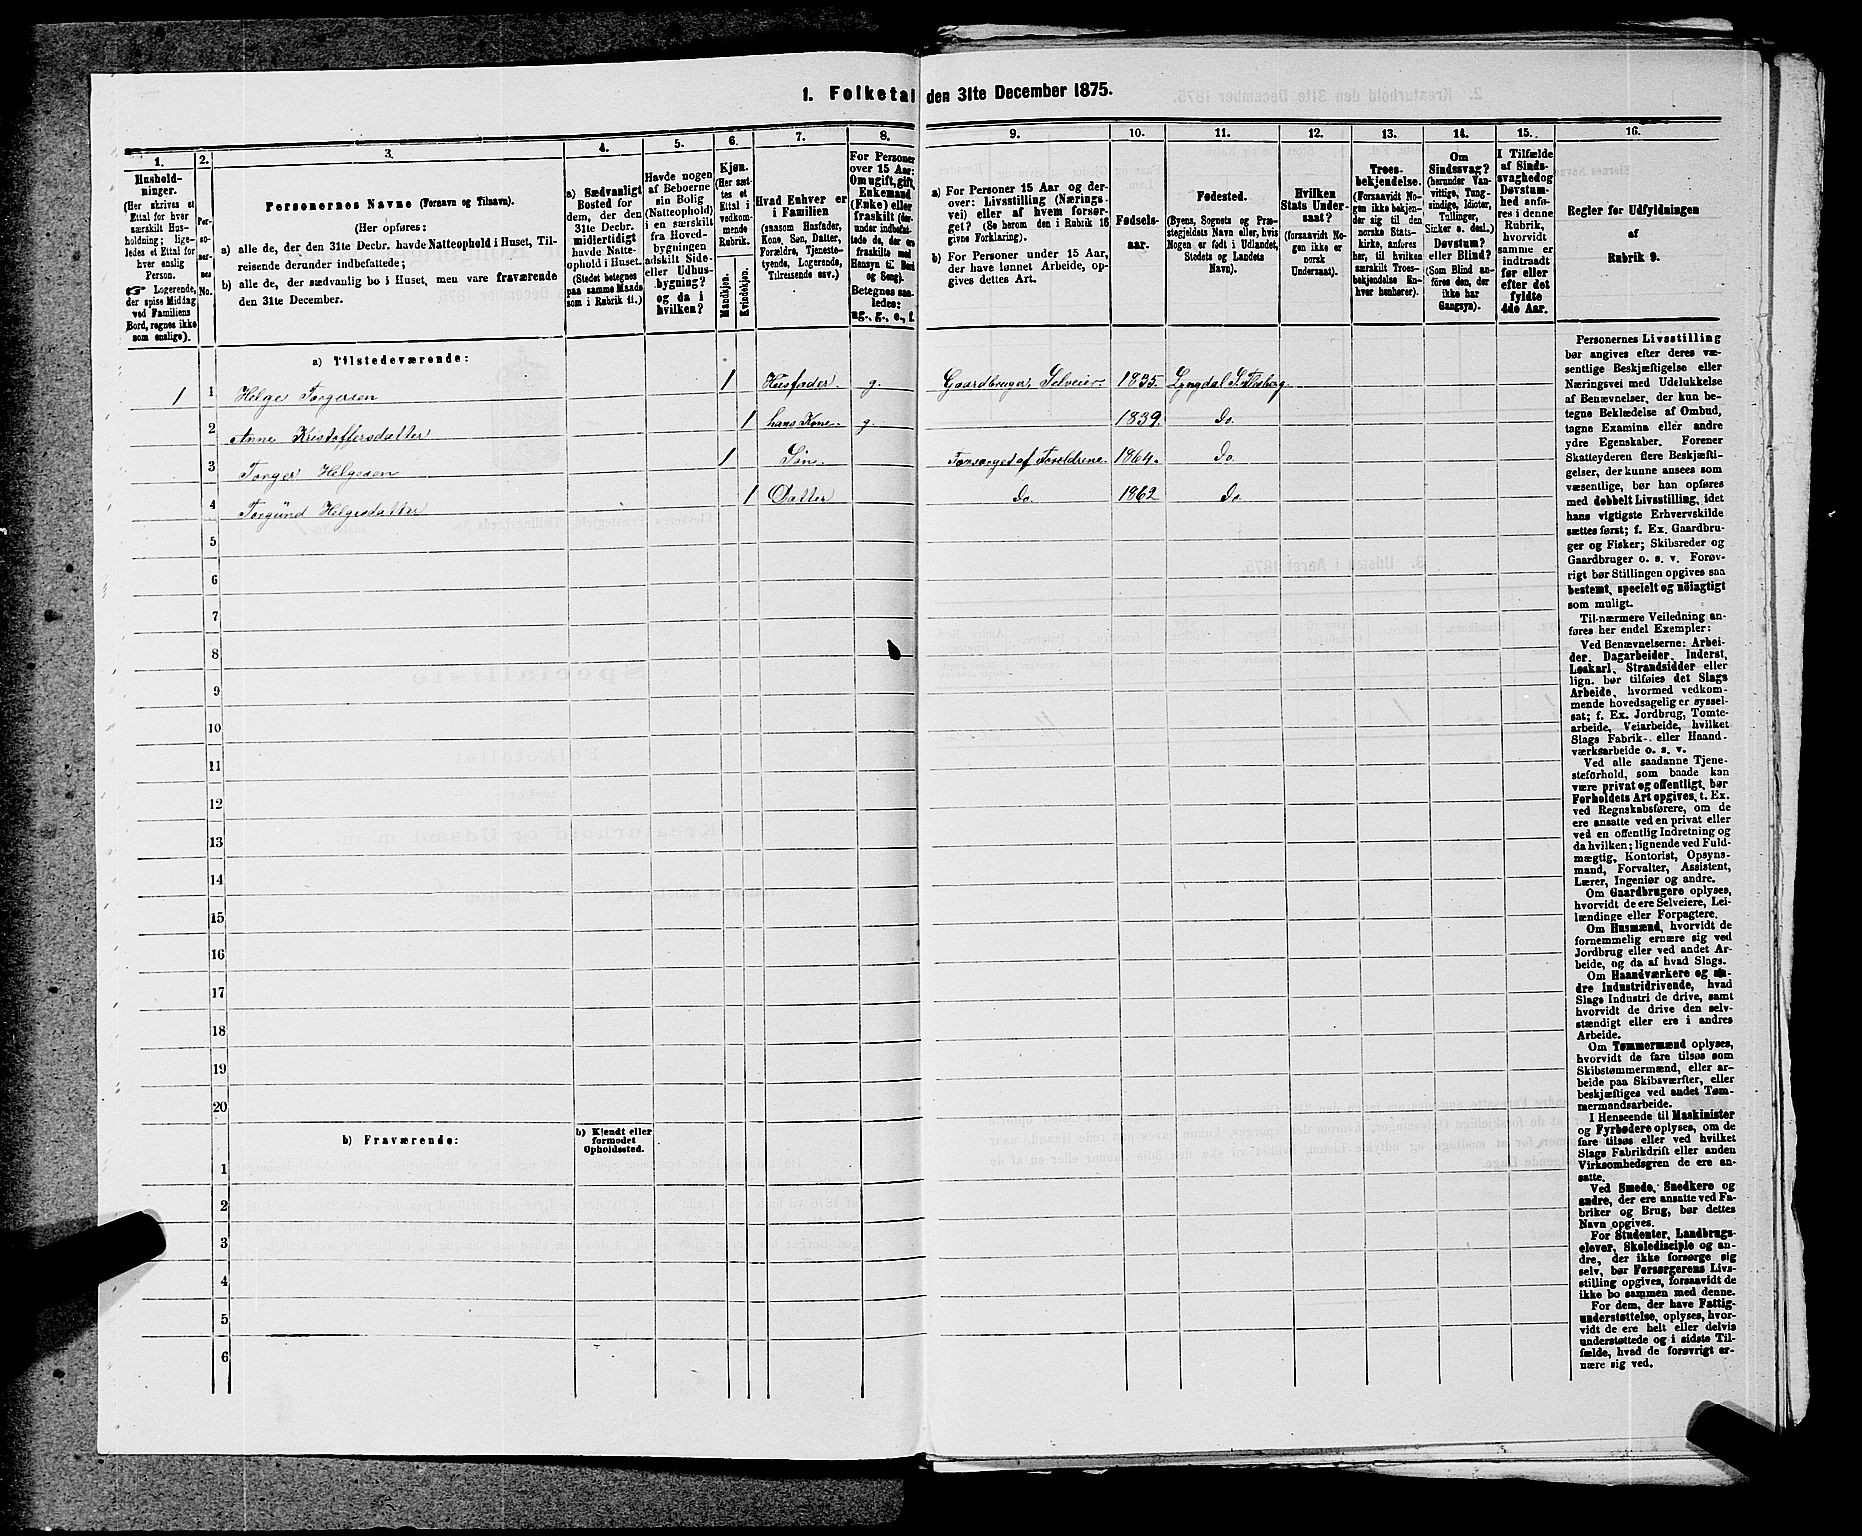 1. Folketal den 31te December 1875.
1.
Hushold-
ninger.
(Her skrives et
Ettal for hver
særskilt Hus-
holdning; lige-
ledes et Ettal for
hver enslig
Person.
☞ Logerende,
der spise Middag
ved Familiens
Bord, regnes ikke
som enslige).
2.
Per-
so-
ner-
nes
No.
3.
Personernes Navne (Fornavn og Tilnavn).
(Her opføres:
a) alle de, der den 31te Decbr. havde Natteophold i Huset, Til-
reisende derunder indbefattede;
b) alle de, der sædvanlig bo i Huset, men vare fraværende
den 31te December.
4.
a) Sædvanligt
Bosted for
dem, der den
31te Decbr.
midlertidigt
havde Natte-
ophold i Huset.
(Stedet betegnes
paa samme Maade
som i Rubrik 11.)
5.
Havde nogen
af Beboerne
sin Bolig
(Natteophold)
i en særskilt
fra Hoved-
bygningen
adskilt Side-
eller Udhus-
bygning?
og da i
hvilken?
6.
Kjøn.
(Her sæt-
tes et
Ettal i
vedkom-
mende
Rubrik.
Mandkjøn.
Kvindekjøn.
7.
Hvad Enhver er
i Familien
(saasom Husfader,
Kone, Søn, Datter,
Forældre, Tjeneste-
tyende, Logerende,
Tilreisende osv.)
8.
For Personer
over 15 Aar:
Om ugift, gift,
Enkemand
(Enke) eller
fraskilt (der-
under indbefat-
tede de, der ere
fraskilte med
Hensyn til Bord
og Seng).
Betegnes saa-
ledes:
ug., g., e., f.
9.
a) For Personer 15 Aar og der-
over: Livsstilling (Nærings-
vei) eller af hvem forsør-
get? (Se herom den i Rubrik 16
givne Forklaring).
b) For Personer under 15 Aar,
der have lønnet Arbeide, op-
gives dettes Art.
10.
Fødsels-
aar.
11.
Fødested.
(Byens, Sognets og Præ-
stegjeldets Navn eller, hvis
Nogen er født i Udlandet,
Stedets og Landets
Navn).
12.
Hvilken
Stats Under-
saat?
(forsaavidt No-
gen ikke er
norsk
Undersaat).
13.
Troes-
bekjendelse.
(Forsaavidt No-
gen ikke bekjen-
der sig til den
norske Stats-
kirke, anføres
her, til hvilken
særskilt Troes-
bekjendelse En-
hver henhører).
14.
Om
Sindssvag?
(herunder Van-
vittige, Tung-
sindige, Idioter,
Tullinger,
Sinker o. desl.)
Døvstum?
eller Blind?
(Som Blind an-
føres den, der
ikke har
Gangsyn).
15.
I Tilfælde
af Sinds-
svaghed og
Døvstum-
hed anfø-
res i denne
Rubrik,
hvorvidt
samme er
indtraadt
før eller
efter det
fyldte
4de Aar.
16.
Regler for Udfyldningen
af
Rubrik 9.
a) Tilstedeværende:
1 1 Helge Torgersen 1 Husfader g. Gaardbruger, Selveier 1835. Lyngdal S. Flesberg
2 Anne Kristoffersdatter 1 hans Kone g. 1839. Do.
3 Torger Helgesen 1 Søn Forsørget af Foreldrene 1864. Do
4 Torgund Helgesdatter 1 Datter Do. 1862 Do.
5
6
7
8
9
10
11
12
13
14
15
16
17
18
19
20
b) Fraværende:
b) Kjendt eller
formodet
Opholdssted.
1
2
3
4
5
6
Personernes Livsstilling
bør angives efter deres væ-
sentlige Beskjæftigelse eller
Næringsvei med Udelukkelse
af Benævnelser, der kun be-
tegne Beklædelse af Ombud,
tagne Examina eller andre
ydre Egenskaber. Forener
Skatteyderen flere Beskjæfti-
gelser, der kunne ansees som
væsentlige, bør han opføres
med dobbelt Livsstilling, idet
hans vigtigste Erhvervskilde
sættes først; f. Ex. Gaardbru-
ger og Fisker; Skibsreder og
Gaardbruger o. s. v. Forøv-
rigt bør Stillingen opgives saa
bestemt, specielt og nøiagtigt
som muligt.
Til nærmere Veiledning an-
føres her endel Exempler:
Ved Benævnelserne: Arbei-
der, Dagarbeider, Inderst,
Løskarl, Strandsidder eller
lign. bør tilføies det Slags
Arbeide, hvormed vedkom-
mende hovedsagelig er syssel-
sat; f. Ex. Jordbrug, Tomte-
arbeide, Veiarbeide, hvilket
Slags Fabrik- eller Haand-
værksarbeide o. s. v.
Ved alle saadanne Tjene-
steforhold, som baade kan
være privat og offentligt, bør
Forholdets Art opgives, t. Ex.
ved Regnskabsførere, om de
ere ansatte ved en privat eller
ved en offentlig Indretning og
da hvilken; lignende ved Fuld-
mægtig, Kontorist, Opsyns-
mand, Forvalter, Assistent,
Lærer, Ingeniør og andre.
Om Gaardbrugere oplyses,
hvorvidt de ere Selveiere, Lei-
lændinge eller Forpagtere.
Om Husmænd, hvorvidt de
fornemmelig ernære sig ved
Jordbrug eller ved andet Ar-
beide, og da af hvad Slags.
Om Haandværkere og an-
dre Industridrivende, hvad
Slags Industri de drive, samt
hvorvidt de drive den selv-
stændigt eller ere i andres
Arbeide.
Om Tømmermænd oplyses,
hvorvidt de fare tilsøs som
Skibstømmermænd, eller ar-
beide paa Skibsværfter, eller
beskjæftiges ved andet Tøm-
mermandsarbeide.
I Henseende til Maskinister
og Fyrbødere oplyses, om de
fare tilsøs eller ved hvilket
Slags Fabrikdrift eller anden
Virksomhedsgren de ere an-
satte.
Ved Smede, Snedkere og
andre, der ere ansatte ved Fa-
briker og Brug, bør dettes
Navn opgives.
For Studenter, Landbrugs-
elever, Skoledisciple og an-
dre, der ikke forsørge sig
selv, bør Forsørgerens Livs-
stilling opgives, forsaavidt de
ikke bo sammen med denne.
For dem, der have Fattig-
understøttelse, oplyses, hvor-
vidt de ere helt eller delvis
understøttede og i sidste Til-
fælde, hvad de forøvrigt er-
nære sig ved.